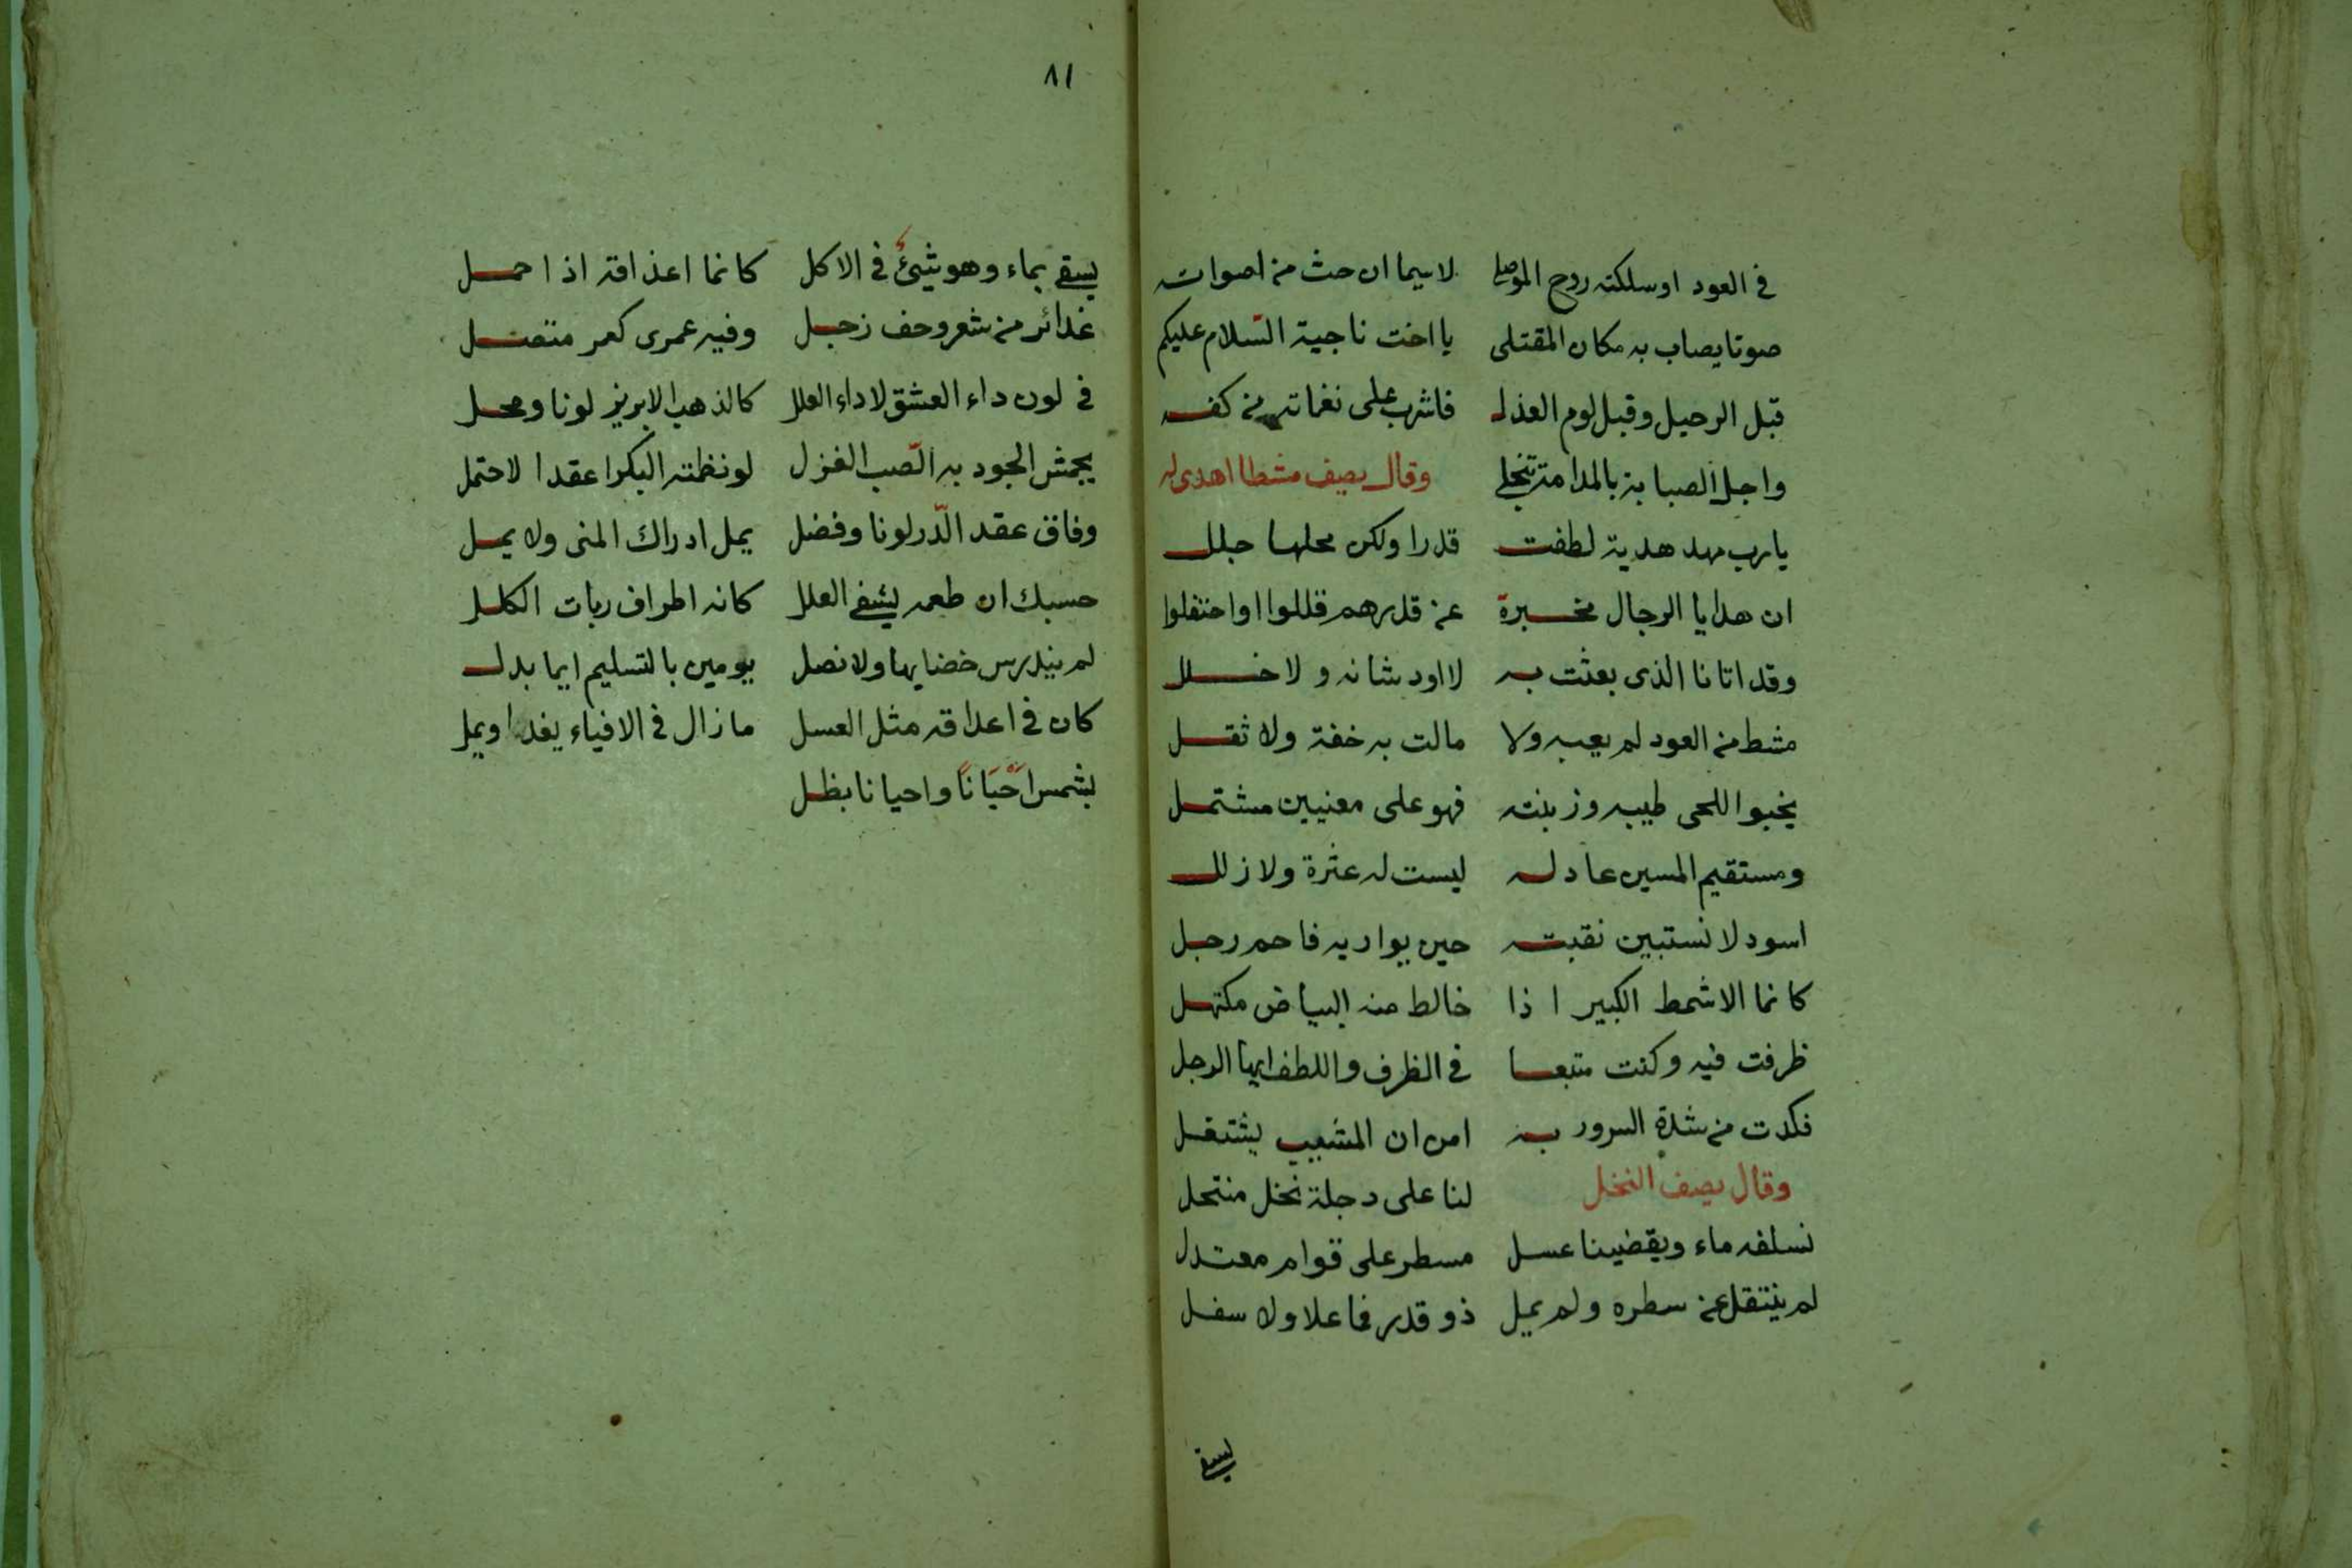 في العود اوسلكته روح الموصلي لاسيما ان حث من اصواته
صوتا يصاب به مكان المقتلى يا اخت ناجية السّلام عليكم
قبل الرحيل وقبل لوم العذل فاشرب على نغماته من كفه
واجل الصبابة بالمدامة تنجلي وقال يصف مشطا اهدى له
يارب مهد هدية لطفت قدرا ولكن محلها جلل
ان هدايا الرجال مخبرة عن قدرهم قللوا او احتفلوا
وقد اتانا الذى بعثت به لا اود شانه ولا خلل
مشط من العود لم يعبه ولا مالت به خفة ولا ثقل
يخبوا اللحى طيبه وزينته فهو على معنيين مشتمل
ومستقيم المسير عادله ليست له عثرة ولا زلل
اسود لا تستبين نقبته حين يواريه فاحم رجل
كانما الاشمط الكبير اذا خالط منه البياض مكتهل
ظرفت فيه وكنت متبعا في الظرف واللطف ايها الرجل
فكدت من شدة السرور به امن ان المشيب يشتغل
وقال يصف النخل لنا على دجلة نخل منتحل
نسلفه ماء ويقضينا عسل مسطر على قوام معتدل
لم ينتقل عن سطره ولم يمل ذو قدر فما علا ولا سفل
يسقي
٨١
يسقي بماء وهو شيئ في الاكل كانما اعذاقه اذا حمل
غدائر من شعر وحف زجل وفيه عمرى كعمر متصل
في لون داء العشق لا داء العلل كالذهب الابريز لونا ومحل
يجمش الجود به الصّب الغزل لو نظمته البكر عقدا لاحتمل
وفاق عقد الدّر لونا وفضل يمل ادراك المنى ولا يمل
حسبك ان طعمه يشفي العلل كانه اطراف ربات الكلل
لم يندرس خضابها ولا نصل يومين بالتسليم ايما بدل
كان في اعداقه مثل العسل مازال في الافياء يغدا ويمل
بشمس احْيَانًا واحيانا بظل